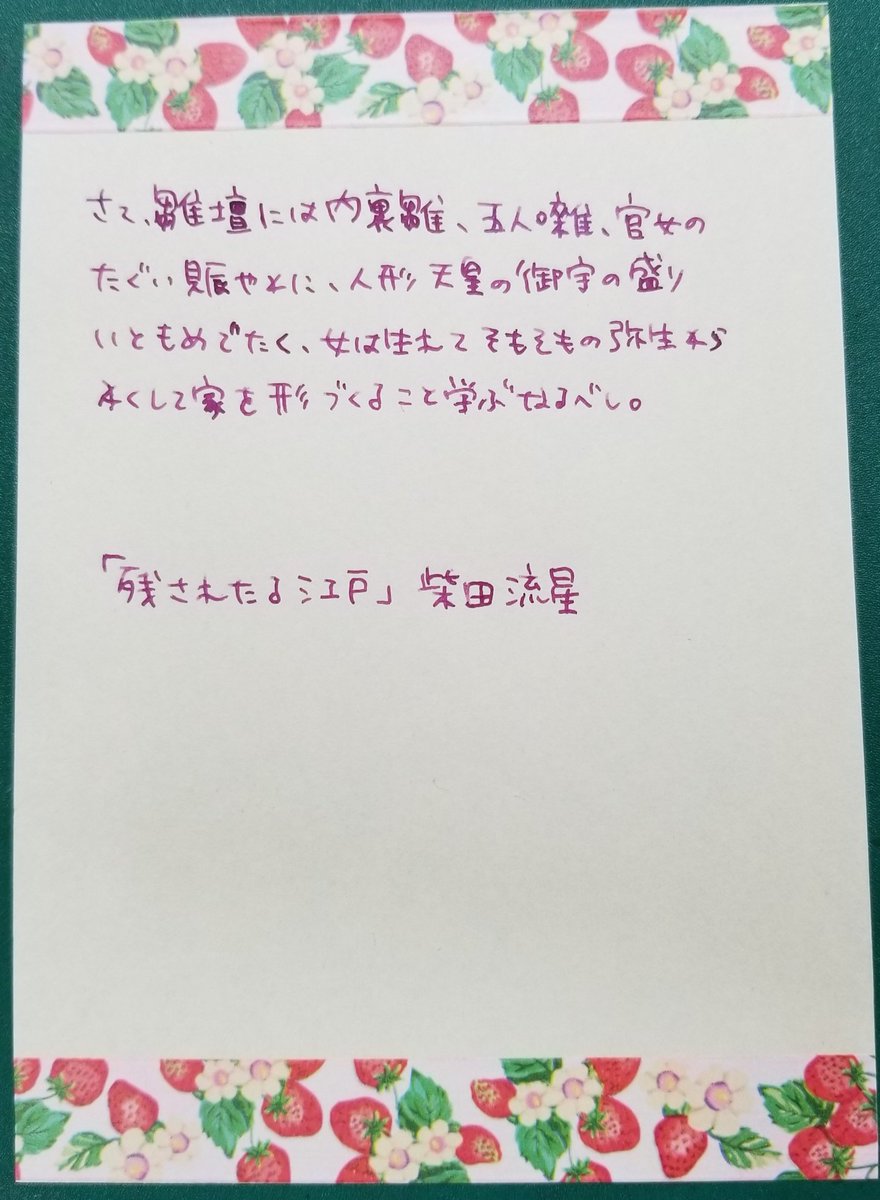 さて、雛壇には内裏雛、五人囃、官女の
たぐい賑やかに、人形天皇の御宇の盛り
いともめでたく、女は生れてそもそもの弥生から
かくして家を形づくること学ぶなるべし。
「残されたる江戸」柴田流星